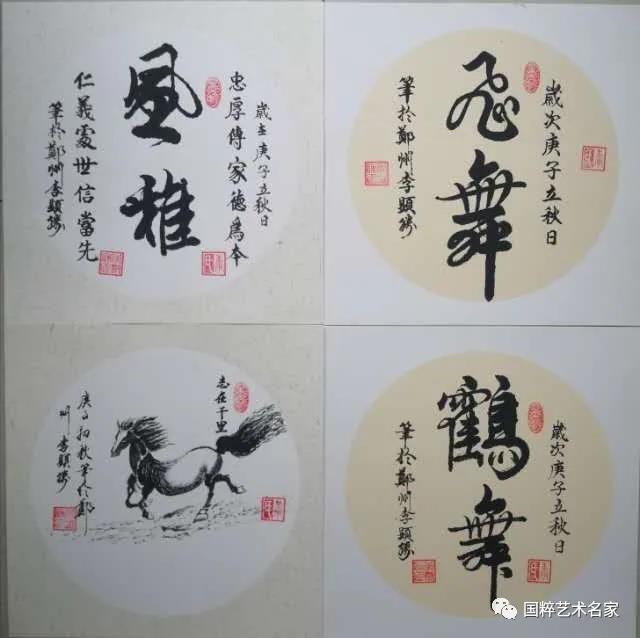 歲在庚子立秋日
忠厚傳家德為本
風雅
仁義處世信當先
筆於鄭州李顯勝
歲次庚子立秋日
飛舞
筆於鄭州李顯勝
志在千里
庚子初秋筆於鄭
州李顯勝
歲次庚子立秋日
鶴舞
筆於鄭州李顯勝
国粹艺术名家